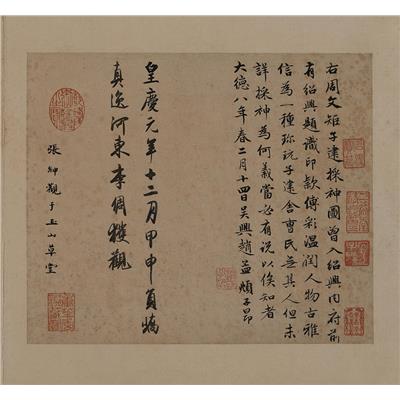 右周文矩子建採神圖曾入紹興內府前
有紹興題識印款傅彩溫潤人物古雅
信為一種珍玩子建舍曹氏無其人但未
詳採神為何義當必有說以俟知者
大德八年春二月十四日吳興趙孟頫子昂
皇慶元年十二月甲申員嶠
真逸河東李倜獲觀
張紳觀于玉山草堂